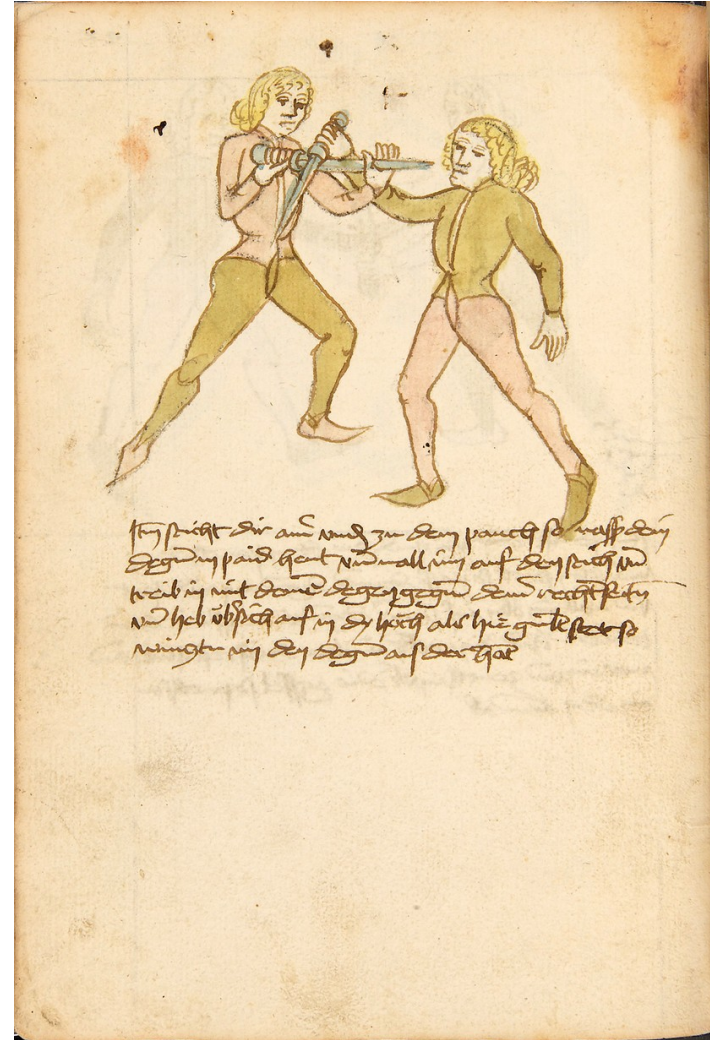 Itm̄ sticht dir ainˀ undˀ zu dem pauch so vass dein
degn̄ in paid hent vn̄ vall im auf den stich vn̄
treib in mit deinē degen gegn̄ deinˀ rechtn̄ seitn̄
vn̄ heb vb̓sich auf in dy höch als hie gemolt stet so
nimstu im den degn̄ aus der hant